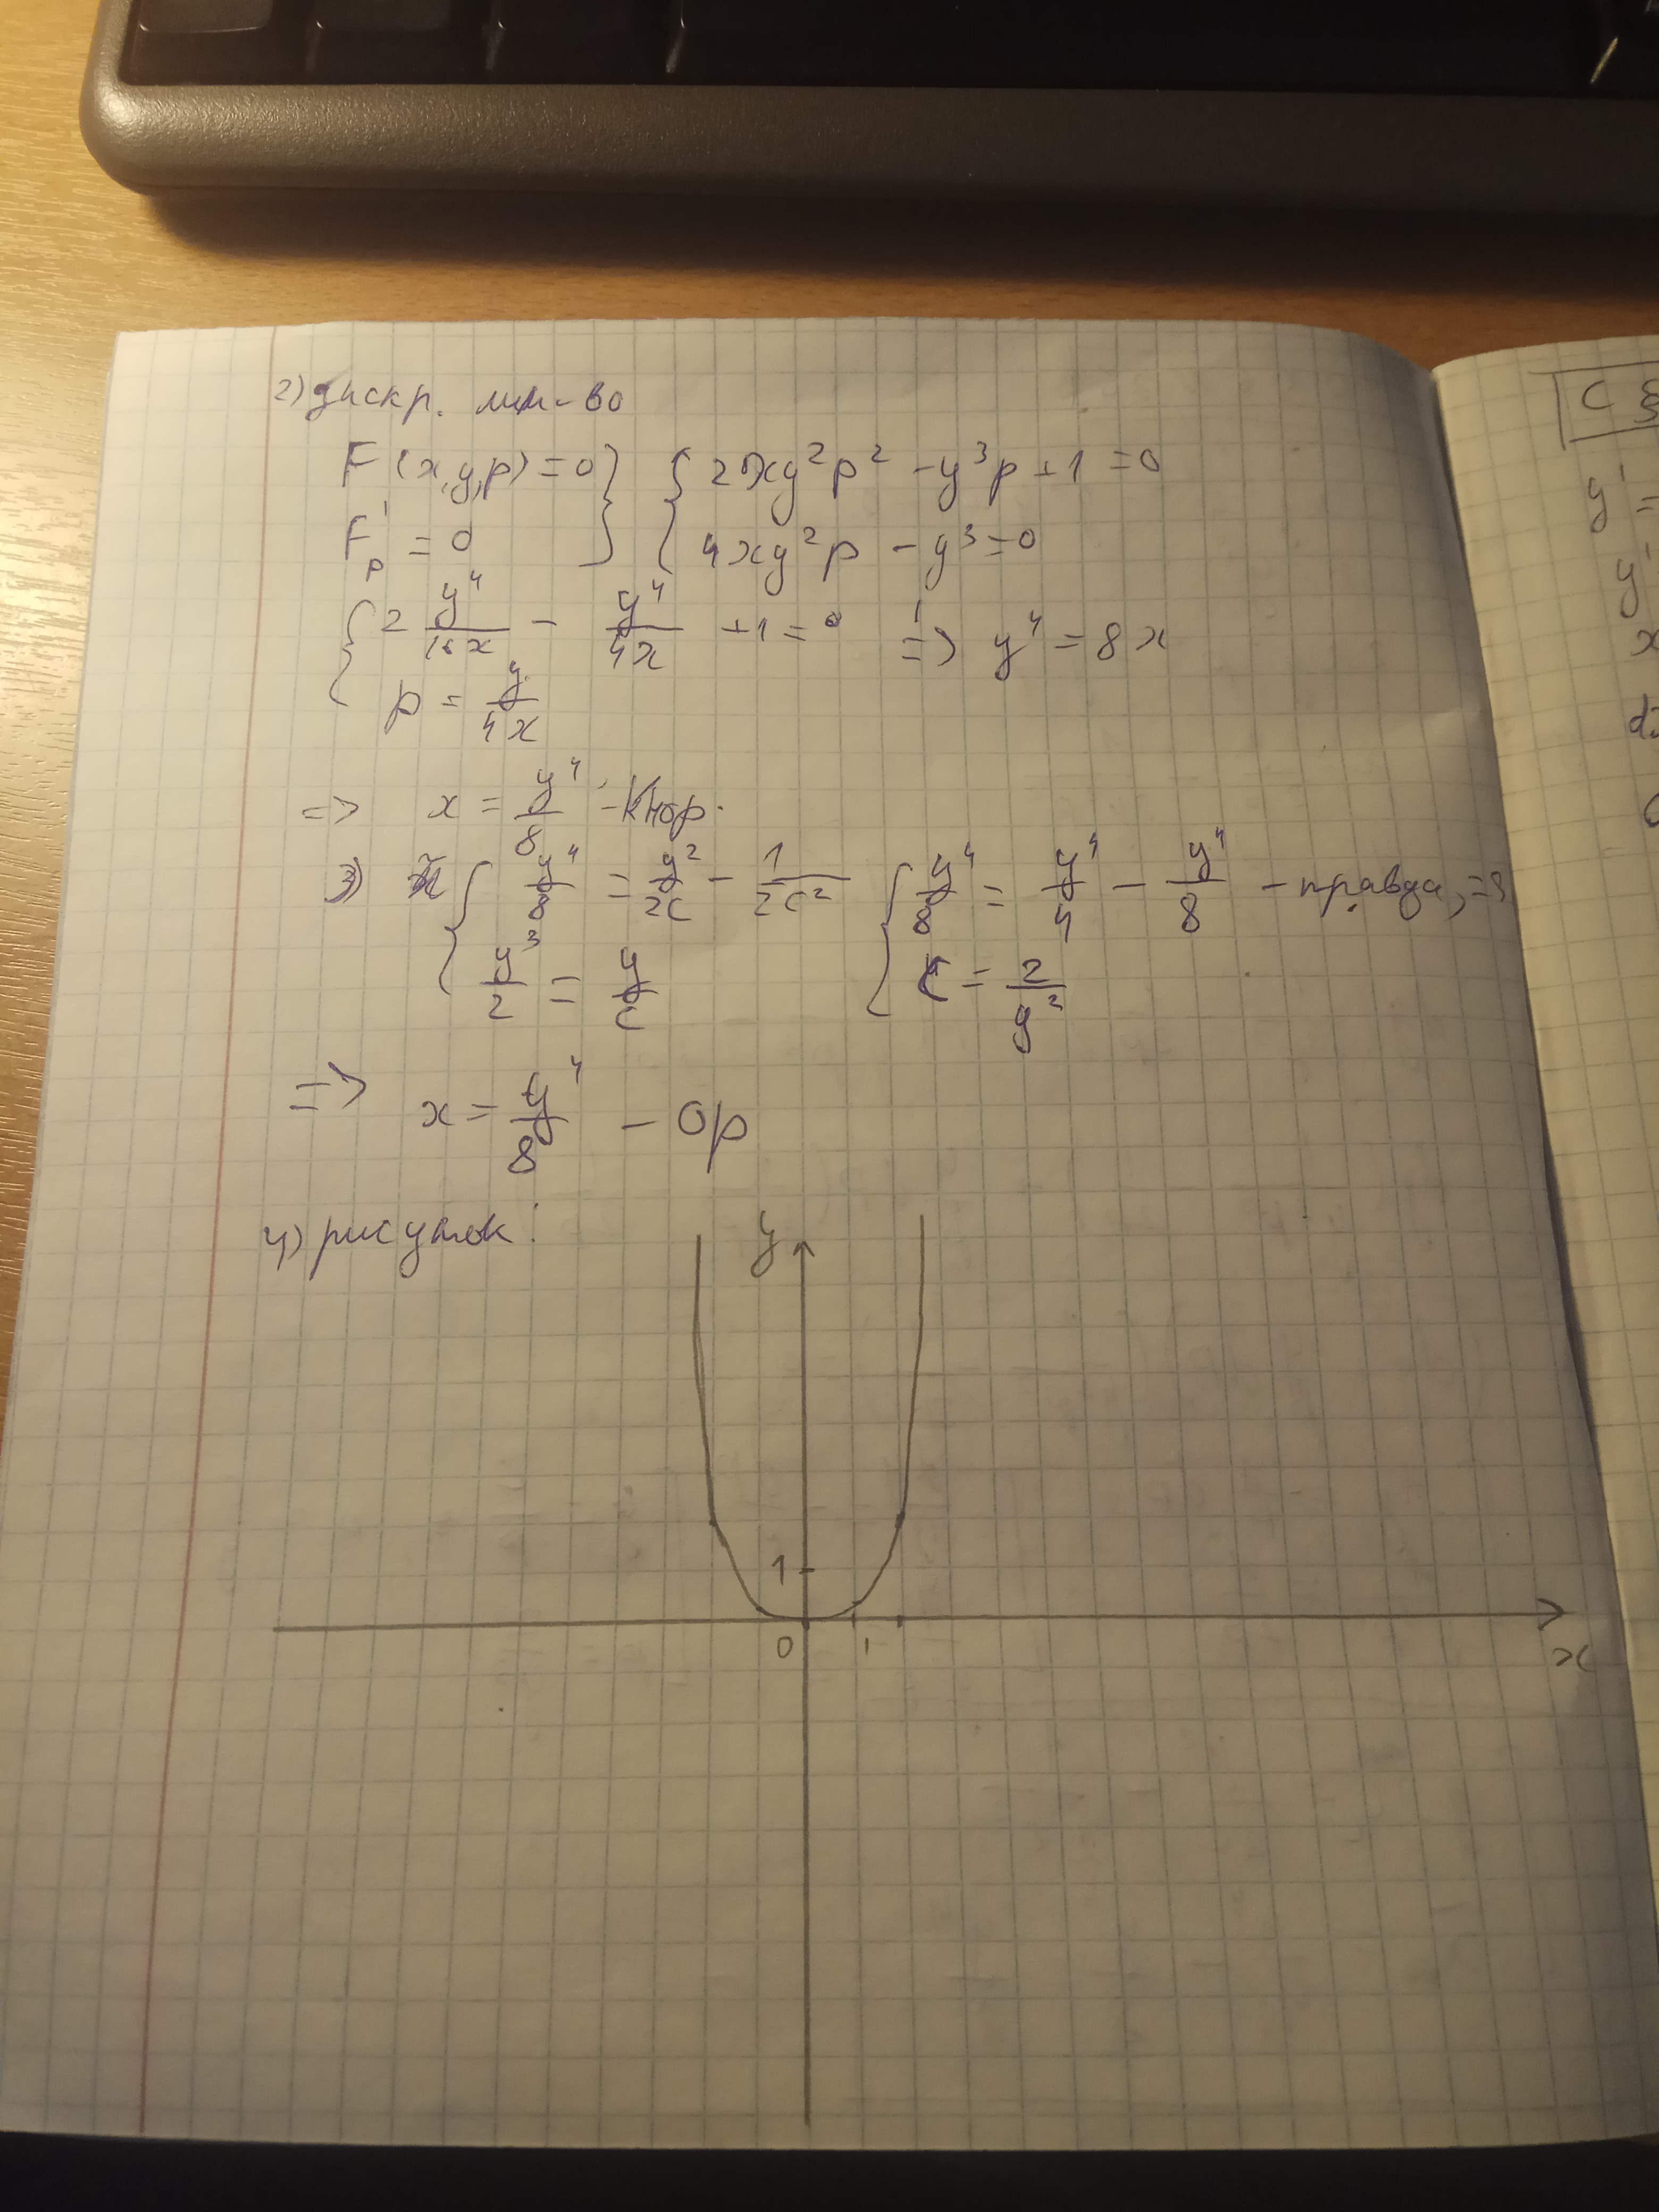 2) дискр. мн-во
F(x,y,p)=0 } { 2xy²p² - y³p + 1 = 0
F'p = 0 } { 4xy²p - y³ = 0
{ 2 y⁴/16x - y⁴/4x + 1 = 0 => y⁴ = 8x
{ p = y/4x
=> x = y⁴/8 - Кнор.
3) { y⁴/8 = y²/2C - 1/2C² { y⁴/8 = y⁴/4 - y⁴/8 - правда, =>
{ y³/2 = y/C { C = 2/y²
=> x = y⁴/8 - Ор
4) рисунок:
y
1
0 1
x
C
y' =
y'
x